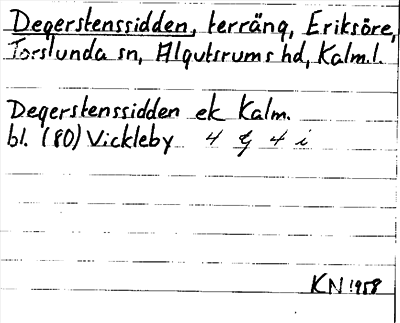 Degerstenssidden, terräng, Eriksöre,
Torslunda sn, Algutsrums hd, Kalm.l.
Degerstenssidden ek Kalm.
bl. (80) Vickleby 4 G 4 i
KN 1958